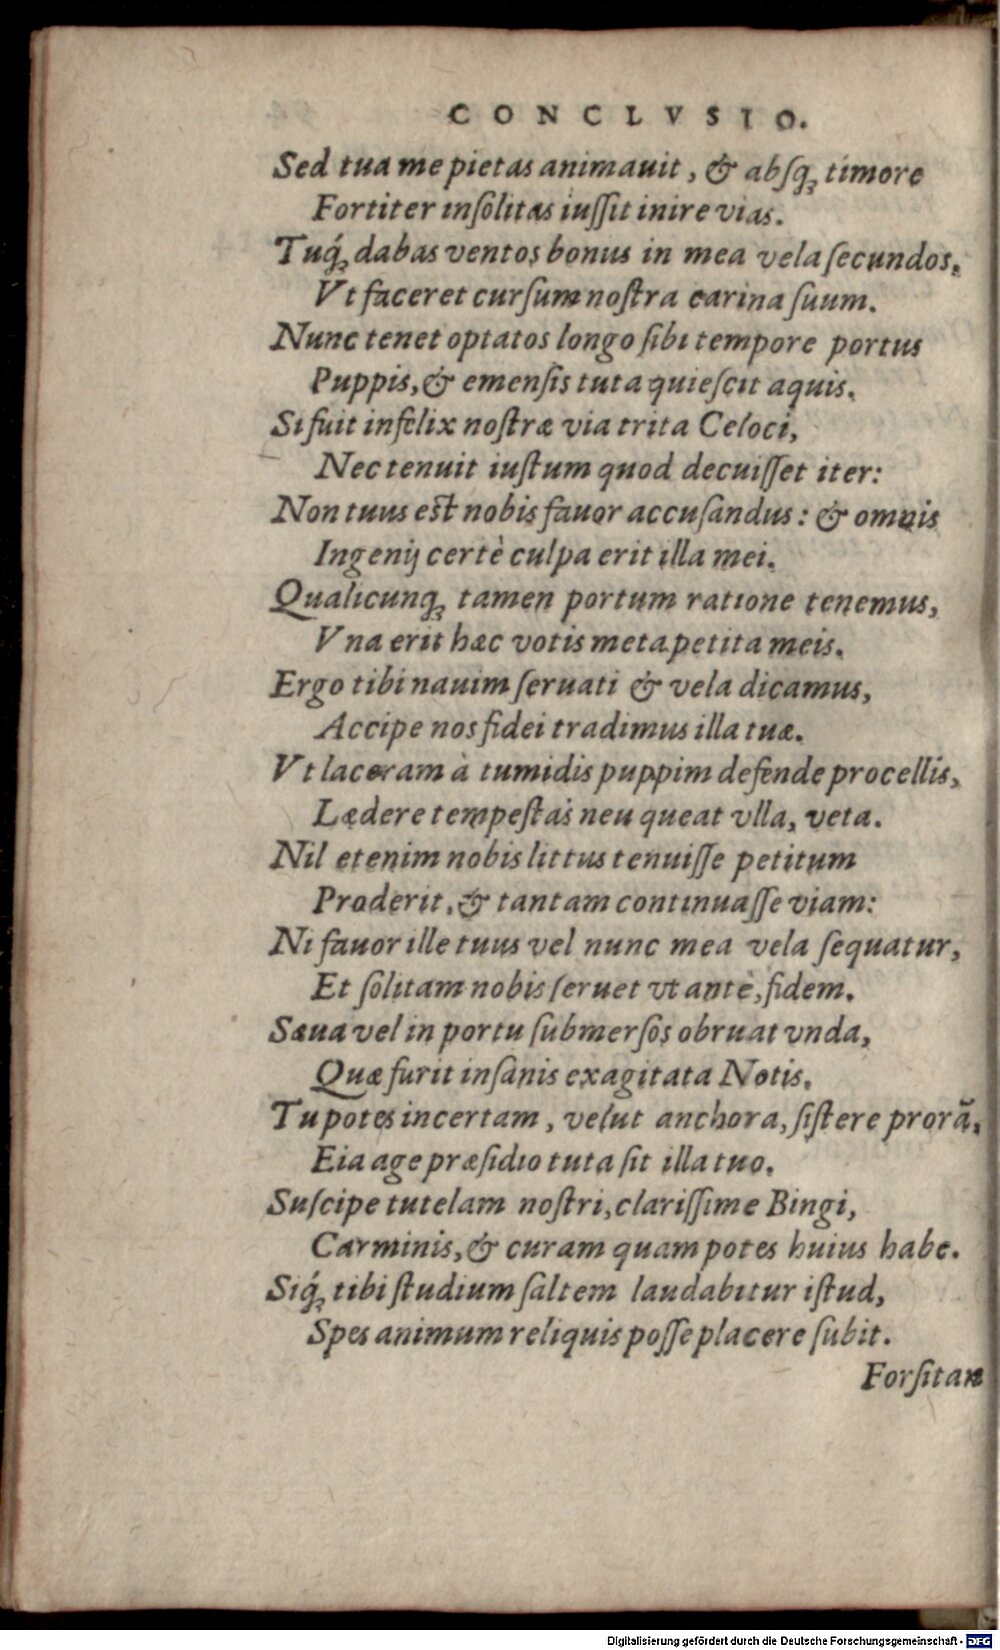 CONCLVSIO.
Sed tua me pietas animauit, & absq; timore
Fortiter insolitas iussit inire vias.
Tuq́; dabas ventos bonus in mea vela secundos,
Vt faceret cursum nostra carina suum.
Nunc tenet optatos longo sibi tempore portus
Puppis, & emensis tuta quiescit aquis.
Si fuit infelix nostræ via trita Celoci,
Nec tenuit iustum quod decuisset iter:
Non tuus est nobis fauor accusandus: & omnis
Ingenij certè culpa erit illa mei.
Qualicunq; tamen portum ratione tenemus,
Vna erit hæc votis meta petita meis.
Ergo tibi nauim seruati & vela dicamus,
Accipe nos fidei tradimus illa tuæ.
Vt laceram à tumidis puppim defende procellis,
Lædere tempestas neu queat vlla, veta.
Nil etenim nobis littus tenuisse petitum
Proderit, & tantam continuasse viam:
Ni fauor ille tuus vel nunc mea vela sequatur,
Et solitam nobis seruet vt antè, fidem.
Sæua vel in portu submersos obruat vnda,
Quæ furit insanis exagitata Notis.
Tu potes incertam, velut anchora, sistere prorā,
Eia age præsidio tuta sit illa tuo.
Suscipe tutelam nostri, clarissime Bingi,
Carminis, & curam quam potes huius habe.
Siq́; tibi studium saltem laudabitur istud,
Spes animum reliquis posse placere subit.
Forsitan
Digitalisierung gefördert durch die Deutsche Forschungsgemeinschaft - DFG